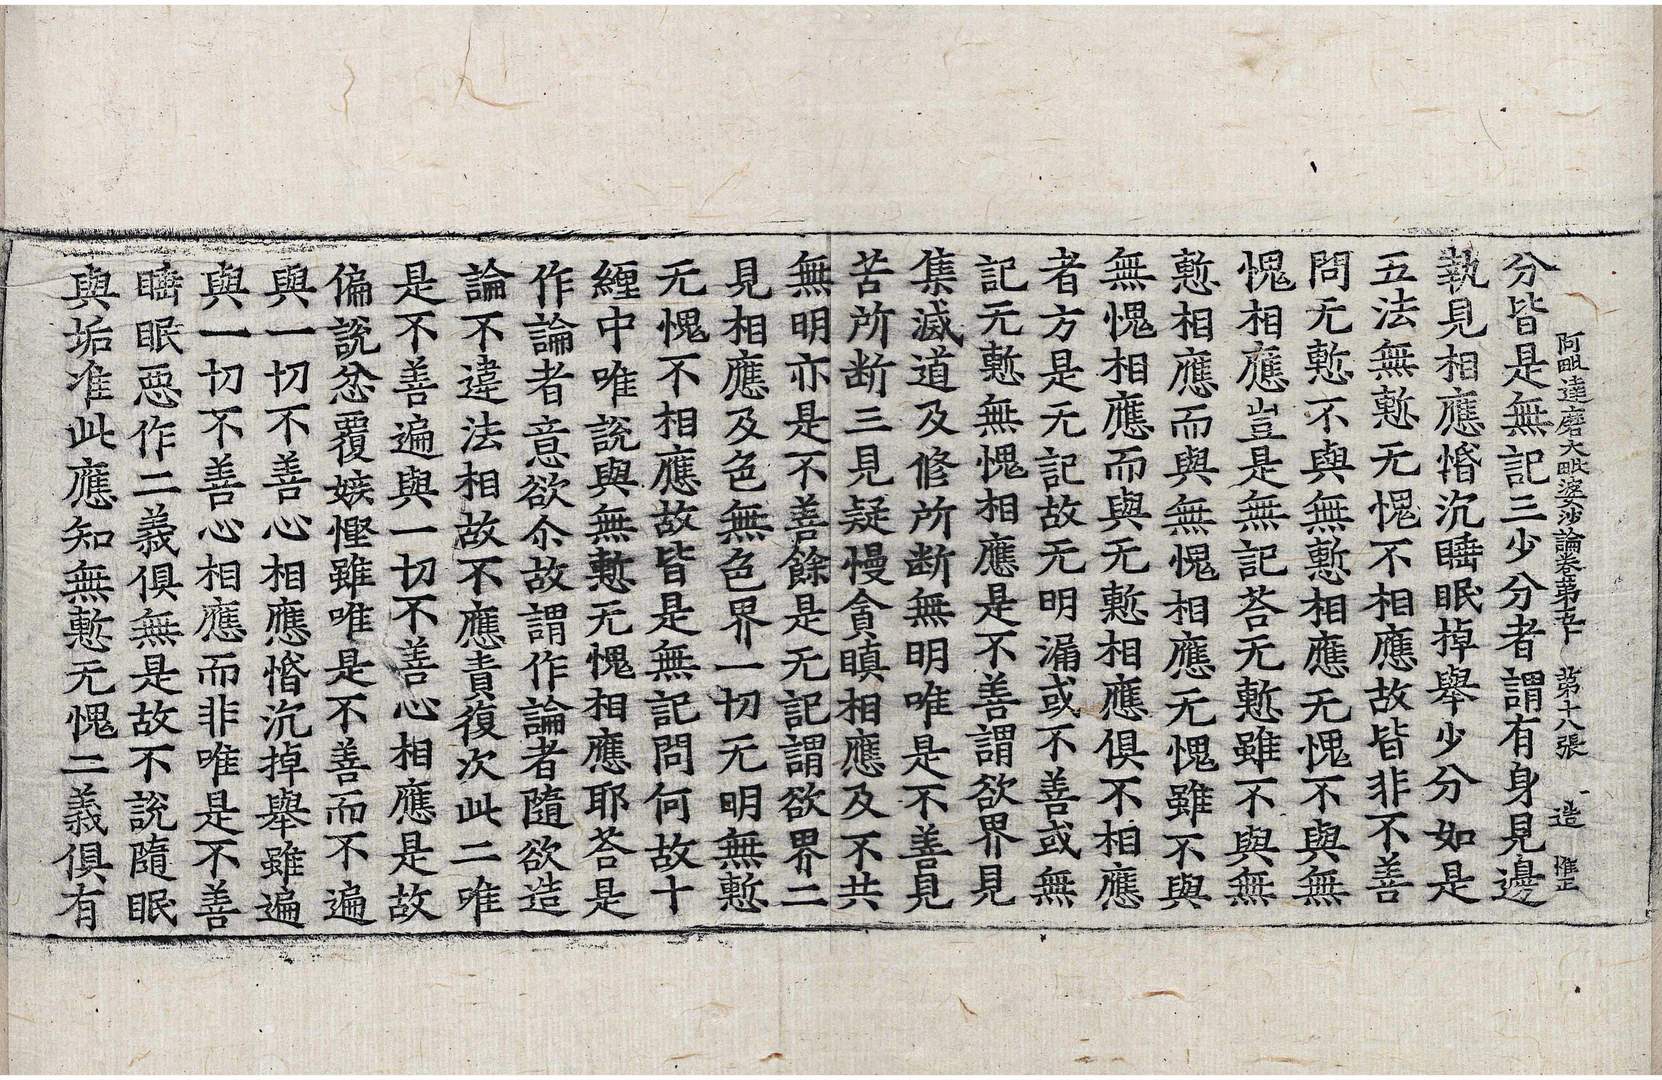 阿毗達磨大毗婆沙論卷第五十 第十八張 造 惟正
分皆是無記三少分者謂有身見邊
執見相應惛沉睡眠掉舉少分如是
五法無慙无愧不相應故皆非不善
問无慙不與無慙相應无愧不與無
愧相應豈是無記荅无慙雖不與無
慙相應而與無愧相應无愧雖不與
無愧相應而與无慙相應俱不相應
者方是无記故无明漏或不善或無
記无慙無愧相應是不善謂欲界見
集滅道及修所断無明唯是不善見
苦所断三見疑慢貪瞋相應及不共
無明亦是不善餘是无記謂欲界二
見相應及色無色界一切无明無慙
无愧不相應故皆是無記問何故十
纏中唯說與無慙无愧相應耶荅是
作論者意欲尒故謂作論者隨欲造
論不違法相故不應責復次此二唯
是不善遍與一切不善心相應是故
偏說忿覆嫉慳雖唯是不善而不遍
與一切不善心相應惛沉掉舉雖遍
與一切不善心相應而非唯是不善
睡眠惡作二義俱無是故不說隨眠
與垢准此應知無慙无愧二義俱有